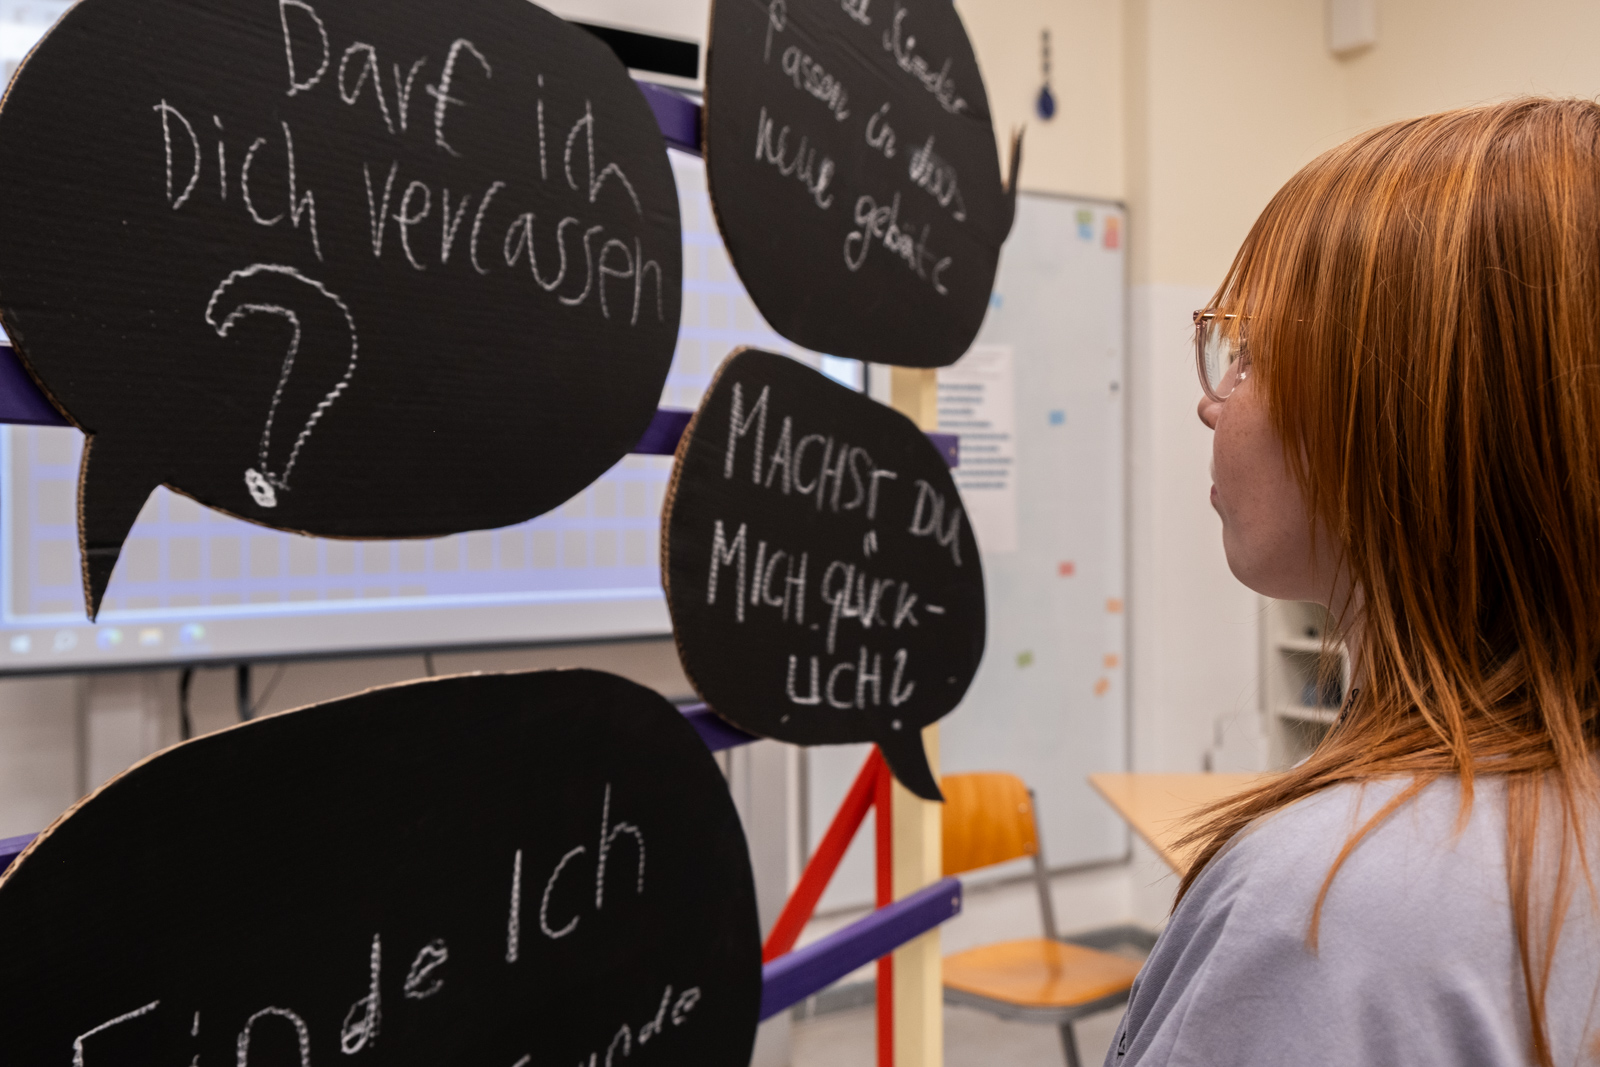 Darf ich
Dich vercassen
?
Kinder
passen in das
neue gebäute
MACHST DU
MICH glück-
LICH?
Finde Ich